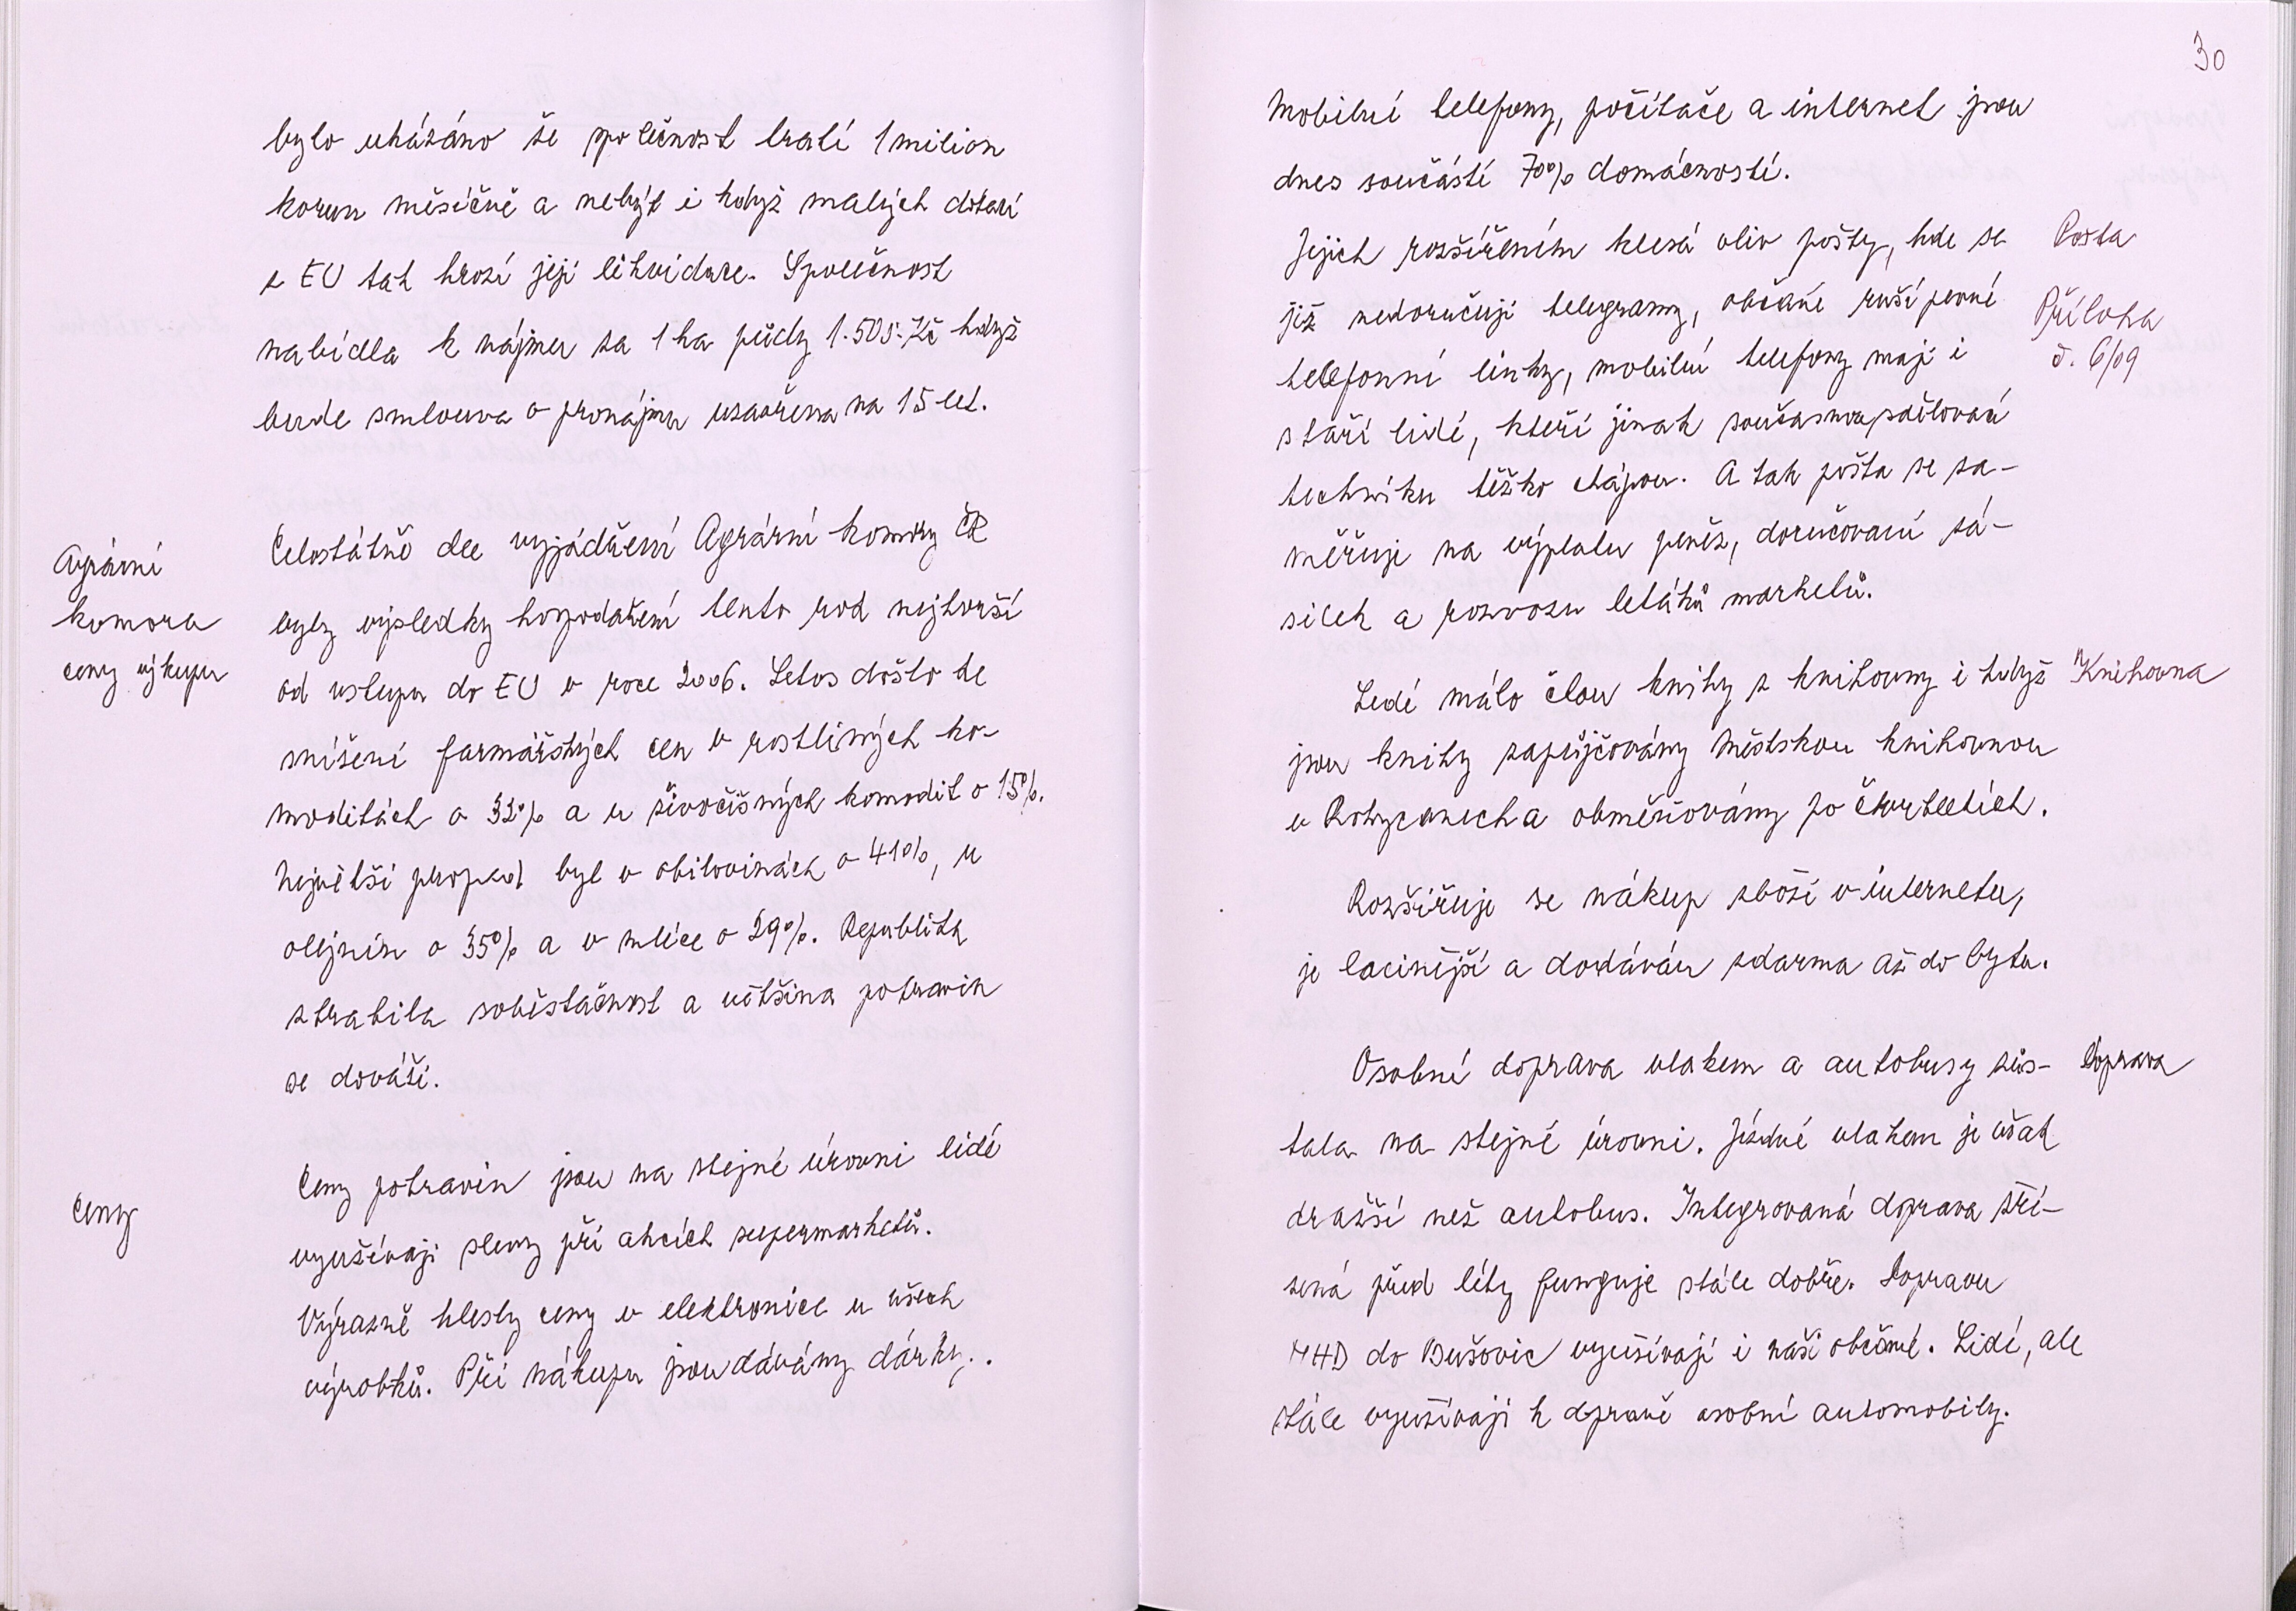 bylo ukázáno že společnost tratí 1 milion
korun měsíčně a nebýt i když malých dotací
z EU tak hrozí její likvidace. Společnost
nabídla k nájmu za 1 ha půdy 1.505.- Kč když
bude smlouva o pronájmu uzavřena na 15 let.
Agrární
komora
ceny výkupu
Celostátně dle vyjádření Agrární komory ČR
byly výsledky hospodaření tento rok nejhorší
od vstupu do EU v roce 2006. Letos došlo ke
snížení farmářských cen v rostliných ko-
moditách o 32% a u živočišných komodit o 15%.
Největší propad byl v obilovinách o 41%, u
olejnin o 35% a v mléce o 29%. Republika
ztratila soběstačnost a většina potravin
se dováží.
Ceny
Ceny potravin jsou na stejné úrovni lidé
využívají slevy při akcích supermarketů.
Výrazně klesly ceny v elektronice u všech
výrobků. Při nákupu jsou dávány dárky..
30
Mobilní telefony, počítače a internet jsou
dnes součástí 70% domácností.
Jejich rozšířením klesá vliv pošty, kde se
Pošta
již nedoručují telegramy, občané ruší pevné
Příloha
č. 6/09
telefonní linky, mobilní telefony mají i
staří lidé, kteří jinak současnou sdělovací
techniku těžko chápou. A tak pošta se za-
měřuje na výplatu peněz, doručování zá-
silek a rozvozu letáků marketů.
Lidé málo čtou knihy z knihovny i když
Knihovna
jsou knihy zapůjčovány Městskou knihovnou
v Rokycanech a obměňovány po čtvrtletích.
Rozšiřuje se nákup zboží v internetu,
je lacinější a dodáván zdarma až do bytu.
Osobní doprava vlakem a autobusy zůs-
Doprava
tala na stejné úrovni. Jízdné vlakem je však
dražší než autobus. Integrovaná doprava zří-
zená před léty funguje stále dobře. Dopravu
MHD do Bušovic využívají i naši občané. Lidé, ale
stále využívají k dopravě osobní automobily.